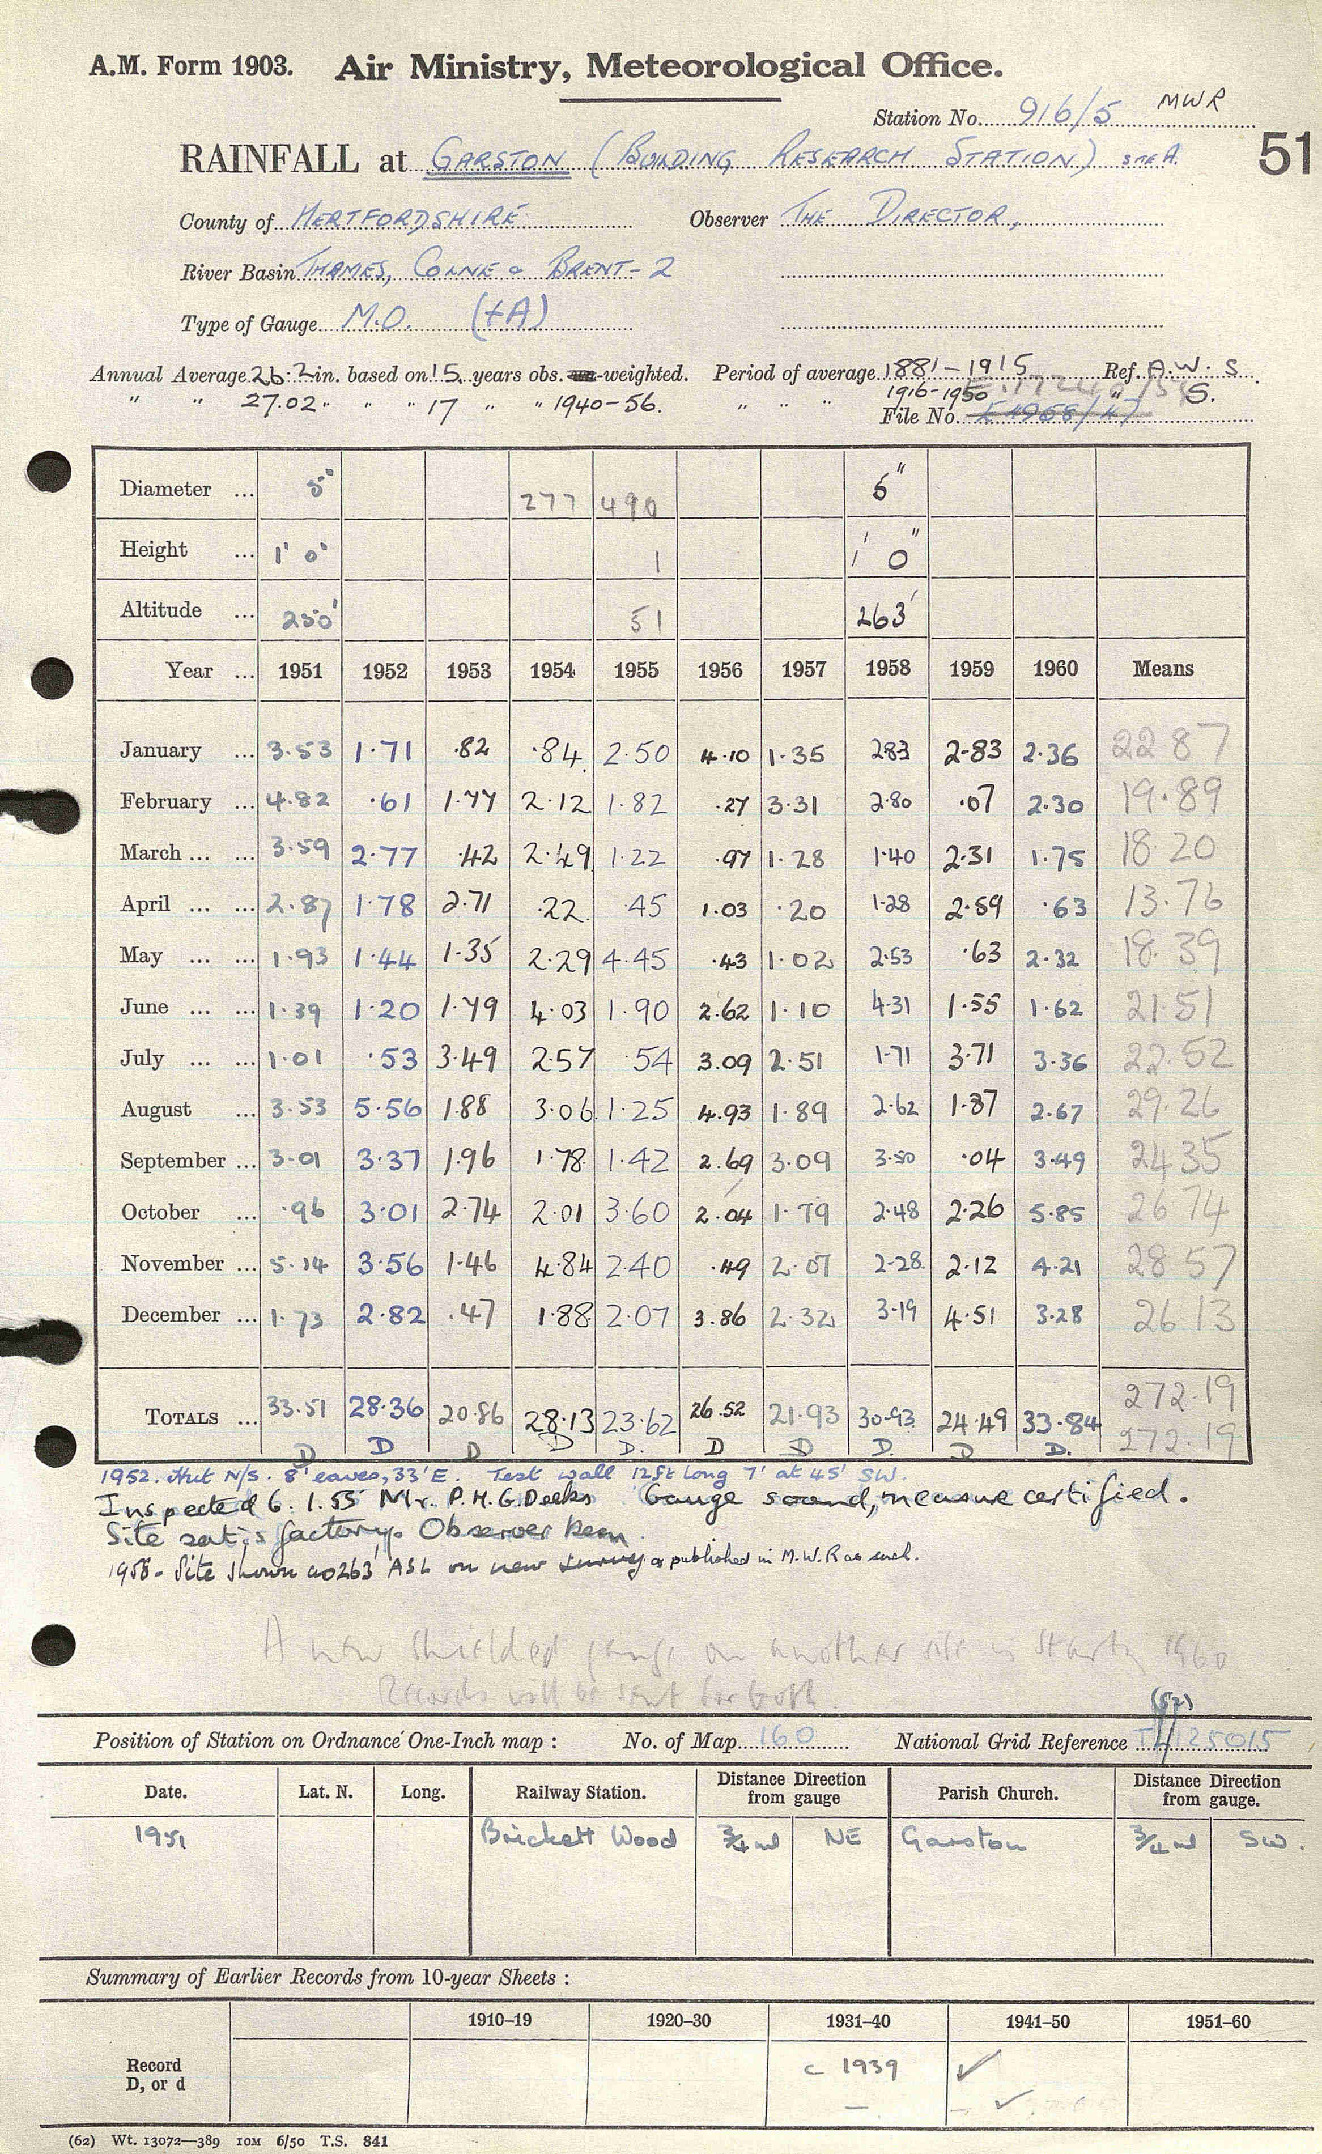 A.M. Form 1903. Air Ministry, Meteorological Office.
Station No. 916/5 MWR
RAINFALL at GARSTON (BUILDING RESEARCH STATION) SITE A. 51
County of HERTFORDSHIRE Observer THE DIRECTOR,
River Basin THAMES, COLNE & BRENT-2
Type of Gauge M.O. (+A)
Annual Average 26.2 in. based on 15 years obs. un-weighted. Period of average 1881-1915 Ref. A.W.S.
" " 27.02 " " " 17 " " 1940-56. " " " 1916-1950 " S.
File No.
Diameter ... 5" 277 490 5"
Height ... 1' 0" 1 1' 0"
Altitude ... 250' 51 263'
Year ... 1951 1952 1953 1954 1955 1956 1957 1958 1959 1960 Means
January ... 3.53 1.71 .82 .84 2.50 4.10 1.35 2.83 2.83 2.36 22 87
February ... 4.82 .61 1.77 2.12 1.82 .27 3.31 2.80 .07 2.30 19.89
March ... ... 3.59 2.77 .42 2.49 1.22 .97 1.28 1.40 2.31 1.75 18 20
April ... ... 2.87 1.78 2.71 .22 .45 1.03 .20 1.28 2.59 .63 13.76
May ... ... 1.93 1.44 1.35 2.29 4.45 .43 1.02 2.53 .63 2.32 18.39
June ... ... 1.39 1.20 1.79 4.03 1.90 2.62 1.10 4.31 1.55 1.62 21.51
July ... ... 1.01 .53 3.49 2.57 .54 3.09 2.51 1.71 3.71 3.36 22.52
August ... 3.53 5.56 1.88 3.06 1.25 4.93 1.89 2.62 1.87 2.67 29.26
September ... 3.01 3.37 1.96 1.78 1.42 2.69 3.09 3.50 .04 3.49 24 35
October ... .96 3.01 2.74 2.01 3.60 2.04 1.79 2.48 2.26 5.85 26 74
November ... 5.14 3.56 1.46 4.84 2.40 .49 2.07 2.28 2.12 4.21 28.57
December ... 1.73 2.82 .47 1.88 2.07 3.86 2.32 3.19 4.51 3.28 26 13
272.19
TOTALS ... 33.51 28.36 20.86 28.13 23.62 26.52 21.93 30.93 24.49 33.84 272.19
D D D D D. D D D. D D.
1952. Hut N/S. 8' eaves, 33' E. Test wall 12ft long 7' at 45' SW.
Inspected 6.1.55 Mr. P.H.G. Deeks Gauge sound, measure certified.
Site satisfactory. Observer keen.
1958 - Site shown as 263' ASL on new survey & published in M.W.R as such.
A new shielded gauge on another site is starting 1960
Records will be sent for both.
(52)
Position of Station on Ordnance One-Inch map : No. of Map 160 National Grid Reference TL 125015
Date. Lat. N. Long. Railway Station. Distance Direction from gauge Parish Church. Distance Direction from gauge.
1951 Brickett Wood 3/4 ml NE Garston 3/4 ml SW.
Summary of Earlier Records from 10-year Sheets :
1910–19 1920–30 1931–40 1941–50 1951–60
Record c 1939 ✓
D, or d – – ✓
(62) Wt. 13072—389 10M 6/50 T.S. 841